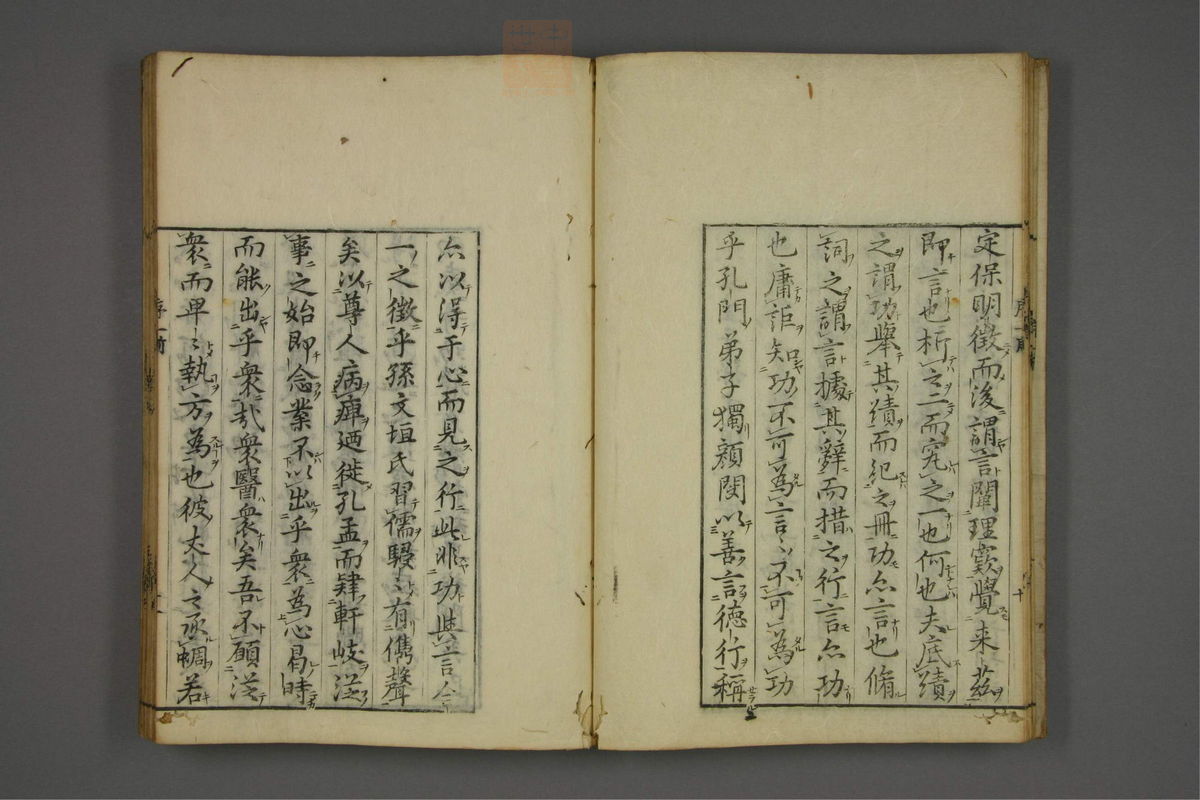 定保明徴而後謂言闡理窽覺来茲
即言也析之二而究之一也何也夫底績
之謂功舉其績而紀之冊功亦言也脩
詞之謂言據其辭而措之行言亦功
也庸詎知功不可為言〻不可為功
乎孔門弟子獨顔閔以善言徳行稱
亦以得于心而見之行此非功與言合
一之徴乎孫文垣氏習儒駸〻有儁聲
矣以尊人病痺廼徙孔孟而肄軒岐從
事之始即念業不以出乎衆為心曷時
而能出乎衆㢤衆醫衆矣吾不願從
衆而卑〻執方為也彼丈人之承蜩若